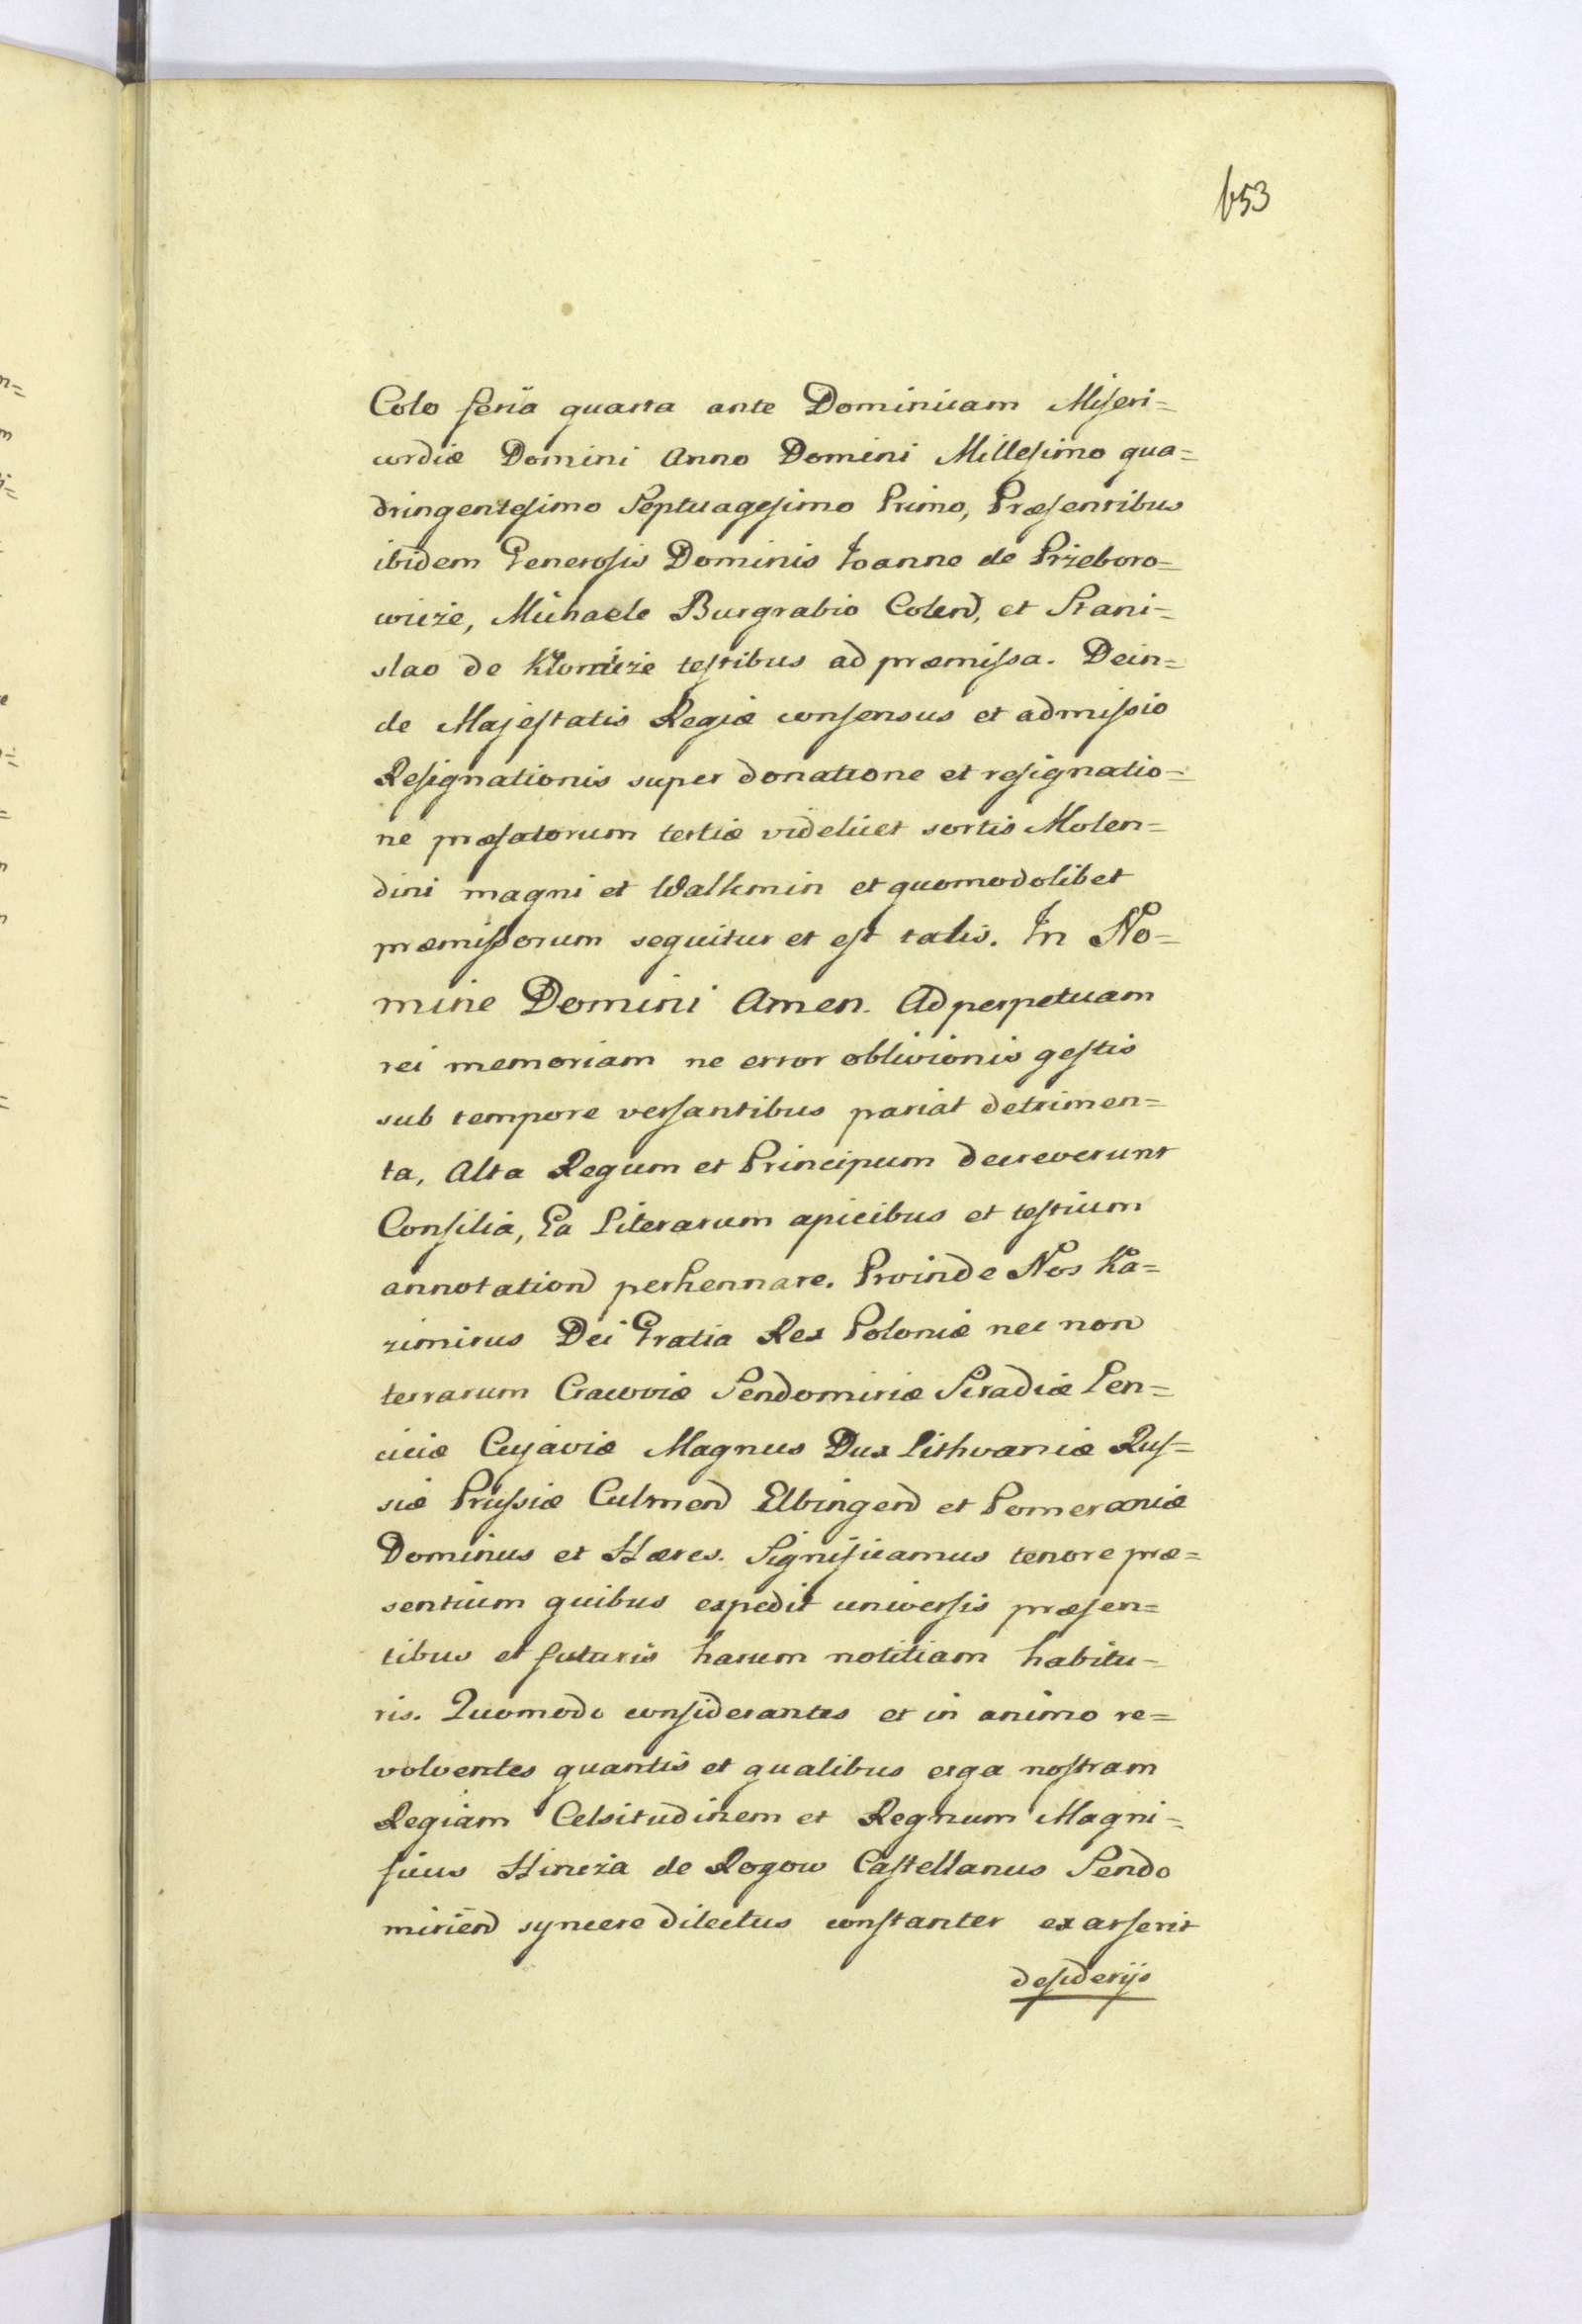 653
Colo feria quarta ante Dominicam Miseri=
cordiæ Domini Anno Domini Millesimo qua=
dringentesimo Septuagesimo Primo, Præsentibus
ibidem Generosis Dominis Ioanne de Przeboro=
wicze, Michaele Burgrabio Colend, et Stani=
slao de Kłomicze testibus ad præmissa. Dein=
de Majestatis Regiæ consensus et admissio
Resignationis super donatione et resignatio=
ne præfatorum tertiæ videlicet sortis Molen=
dini magni et Walkmin et quomodolibet
præmissorum sequitur et est talis. In No=
mine Domini Amen. Ad perpetuam
rei memoriam ne error oblivionis gestis
sub tempore versantibus pariat detrimen=
ta, Alta Regum et Principum decreverunt
Consilia, Ea Literarum apicibus et testium
annotation perhennare. Proinde Nos Ka=
zimirus Dei Gratia Rex Poloniæ nec non
terrarum Cracoviæ Sendomiriæ Siradiæ Len=
ciciæ Cujaviæ Magnus Dux Lithvaniæ Rus=
siæ Prussiæ Culmend Elbingend et Pomeraniæ
Dominus et Hæres. Significamus tenore præ=
sentium quibus expedit universis præsen=
tibus et futuris harum notitiam habitu=
ris. Quomodo considerantes et in animo re=
volventes quantis et qualibus erga nostram
Regiam Celsitudinem et Regnum Magni=
ficus Hincza de Rogow Castellanus Sendo
miriend syncere dilectus constanter exarserit
desiderijs